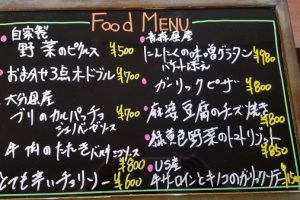 Food MENU
自家製
野菜のピクルス ¥500
おまかせ3点オードブル ¥700
大分県産
ブリのカルパッチョ
ジェノバーゼソース ¥700
牛肉のたたき バルサミコソース
¥800
とても辛いチョリソー ¥600
青森県産
にんにくの味噌グラタン
バケット添え ¥980
ガーリックピザ ¥800
麻婆豆腐のチーズ焼き
¥800
緑黄色野菜のトマトリゾット
¥850
US産
牛サーロインとキノコのガーリックソテー